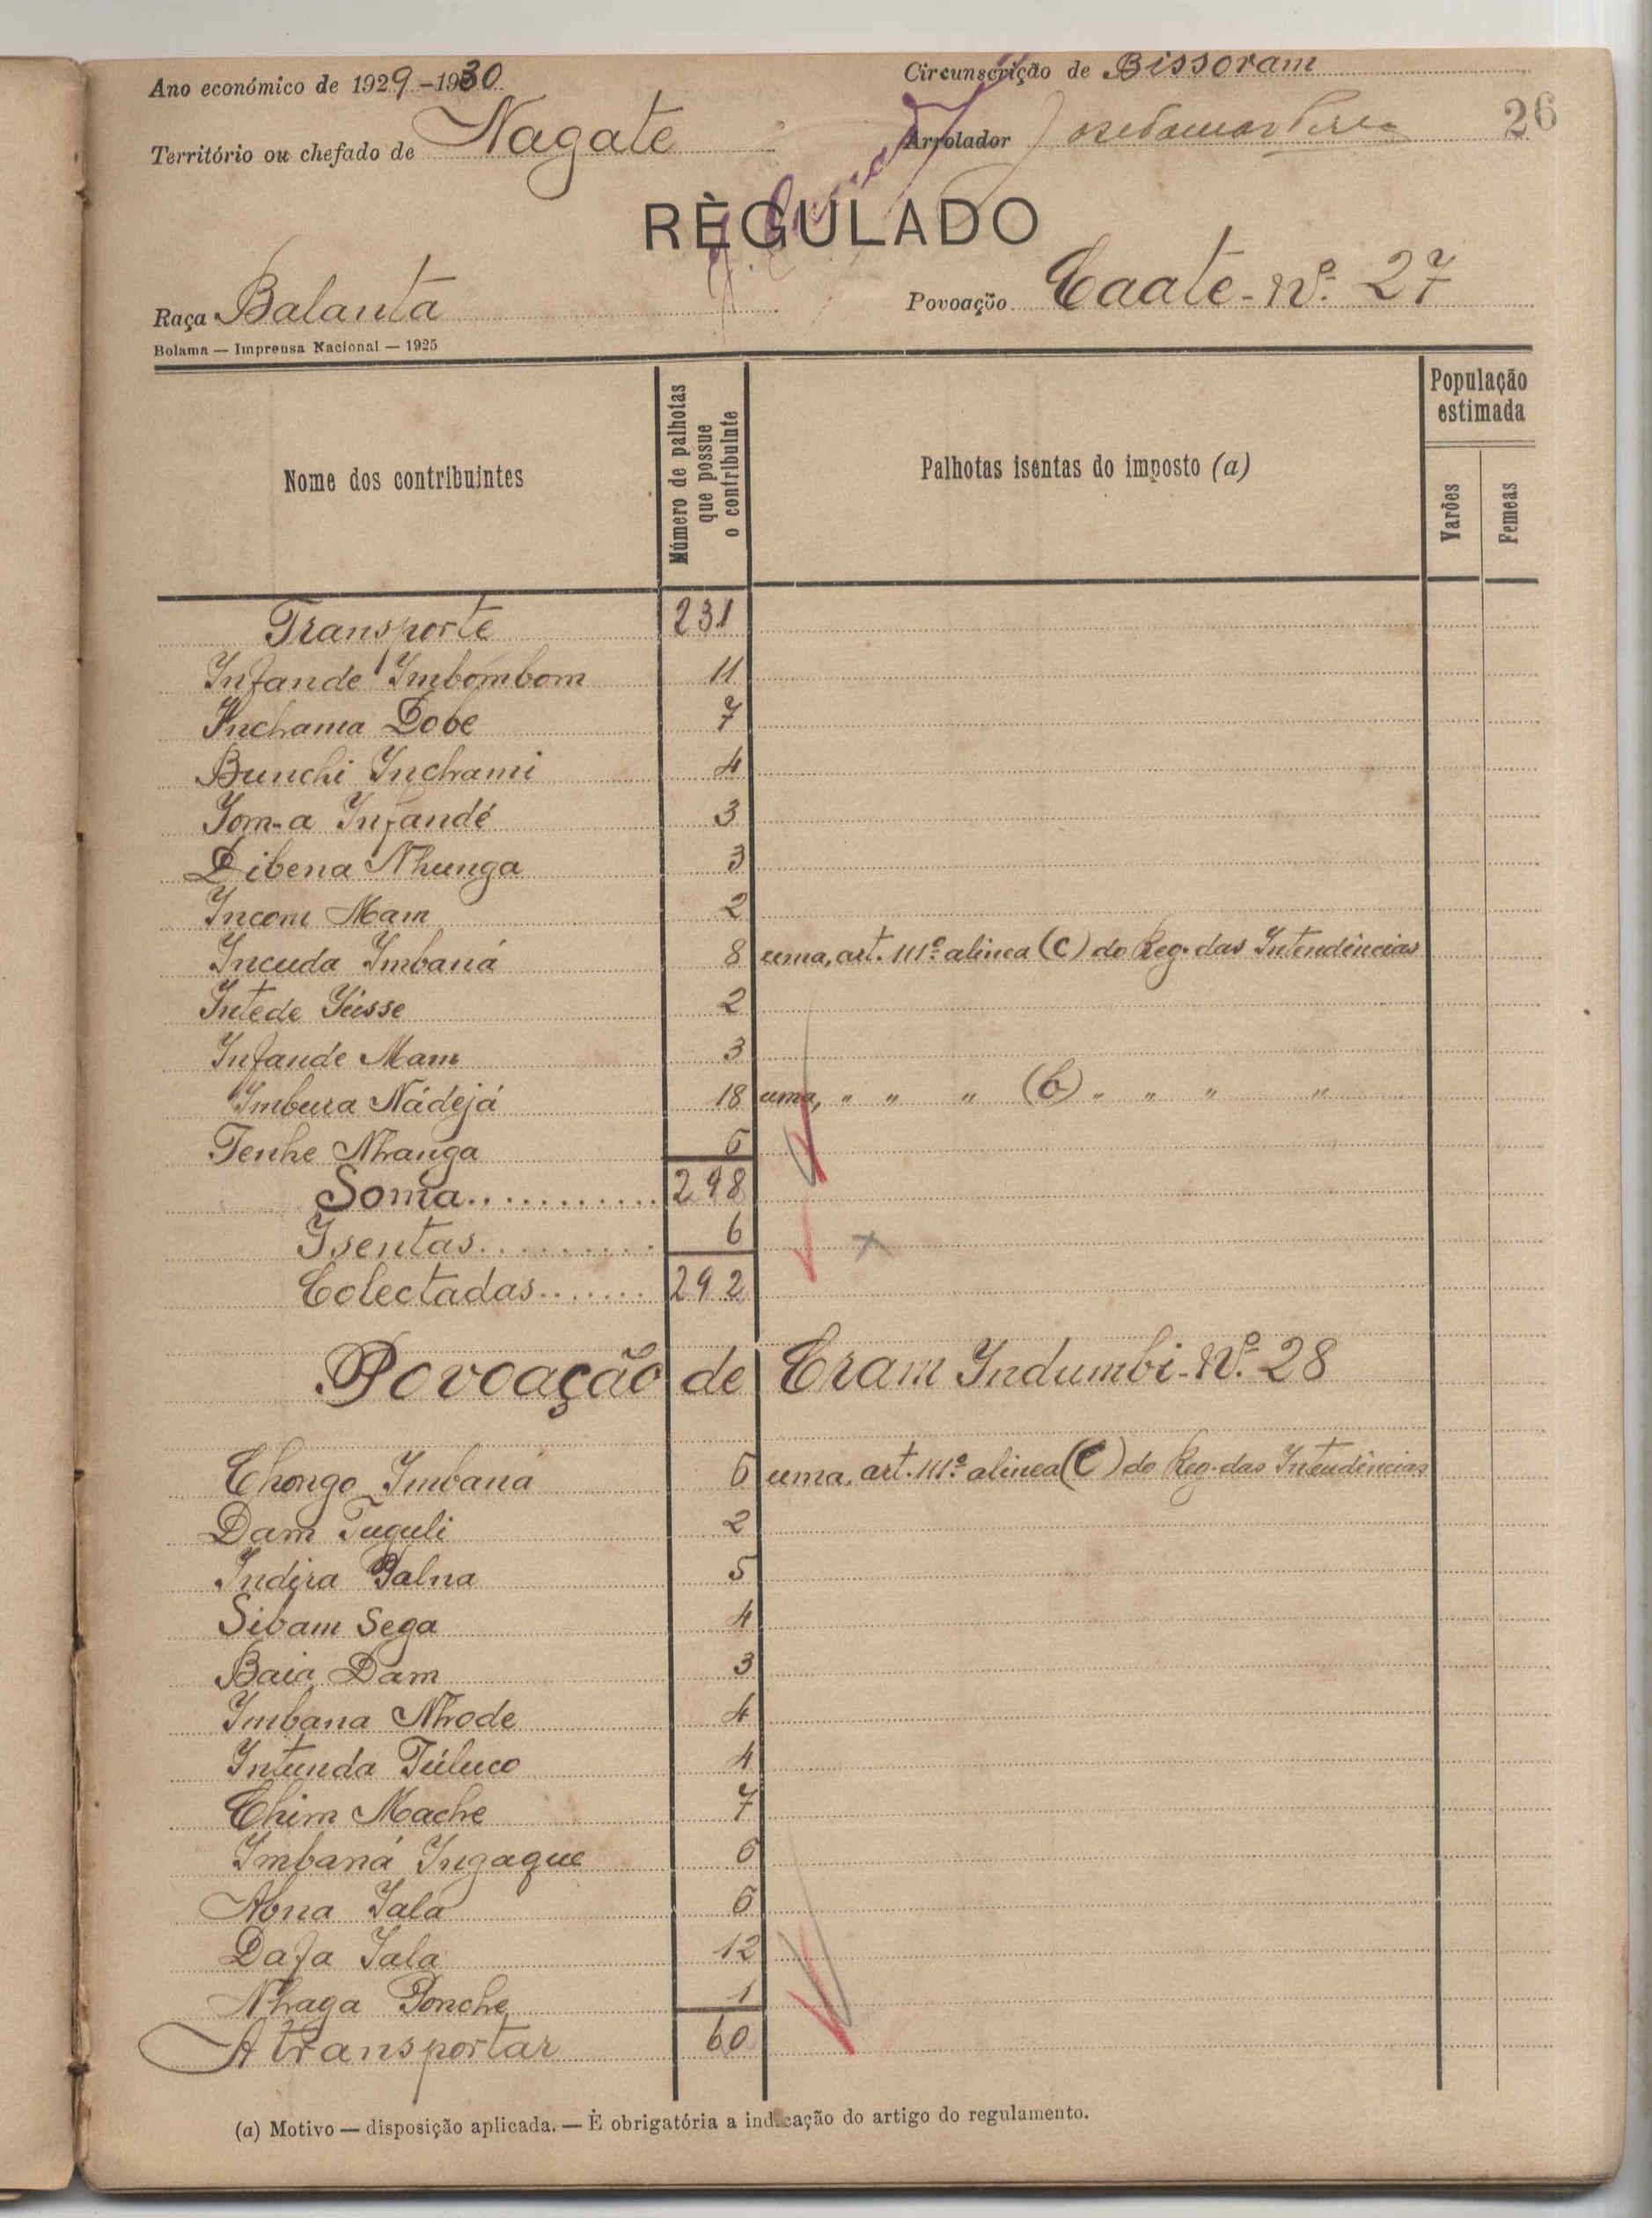 Ano económico de 1929-1930
Circunscrição de Bissoram
26
Território ou chefado de Nagate
Arrolador
RÈGULADO
Raça Balanta
Povoação Caate-Nº. 27
Bolama — Imprensa Nacional — 1925
Nome dos contribuintes
Número de palhotas que possue o contribuinte
Palhotas isentas do imposto (a)
População estimada
Varões
Femeas
Transporte 231
Infande Imbombom 11
Inchama Dobe 7
Bunchi Inchami 4
Iom-a Infandé 3
Dibena Nhunga 3
Incom Mam 2
Incuda Imbaná 8 uma, art. 111º alinea (C) do Reg. das Intendências
Intede Iüsse 2
Infande Mam 3
Imbura Nádejá 18 uma, " " " (b) " " " "
Tenhe Nhanga 6
Soma........... 298
Isentas......... 6
Colectadas....... 292
Povoação de Cram Indumbi-Nº. 28
Chongo Imbaná 6 uma, art. 111º alinea (C) do Reg. das Intendências
Dam Tuguli 2
Indira Balna 5
Sibam Sega 4
Baia Dam 3
Imbana Nhode 4
Intunda Túluco 4
Chim Mache 7
Imbaná Ingaque 6
Abna Iala 6
Dafa Iala 12
Nhaga Bonche 1
A transportar 60
(a) Motivo — disposição aplicada. — È obrigatória a indicação do artigo do regulamento.